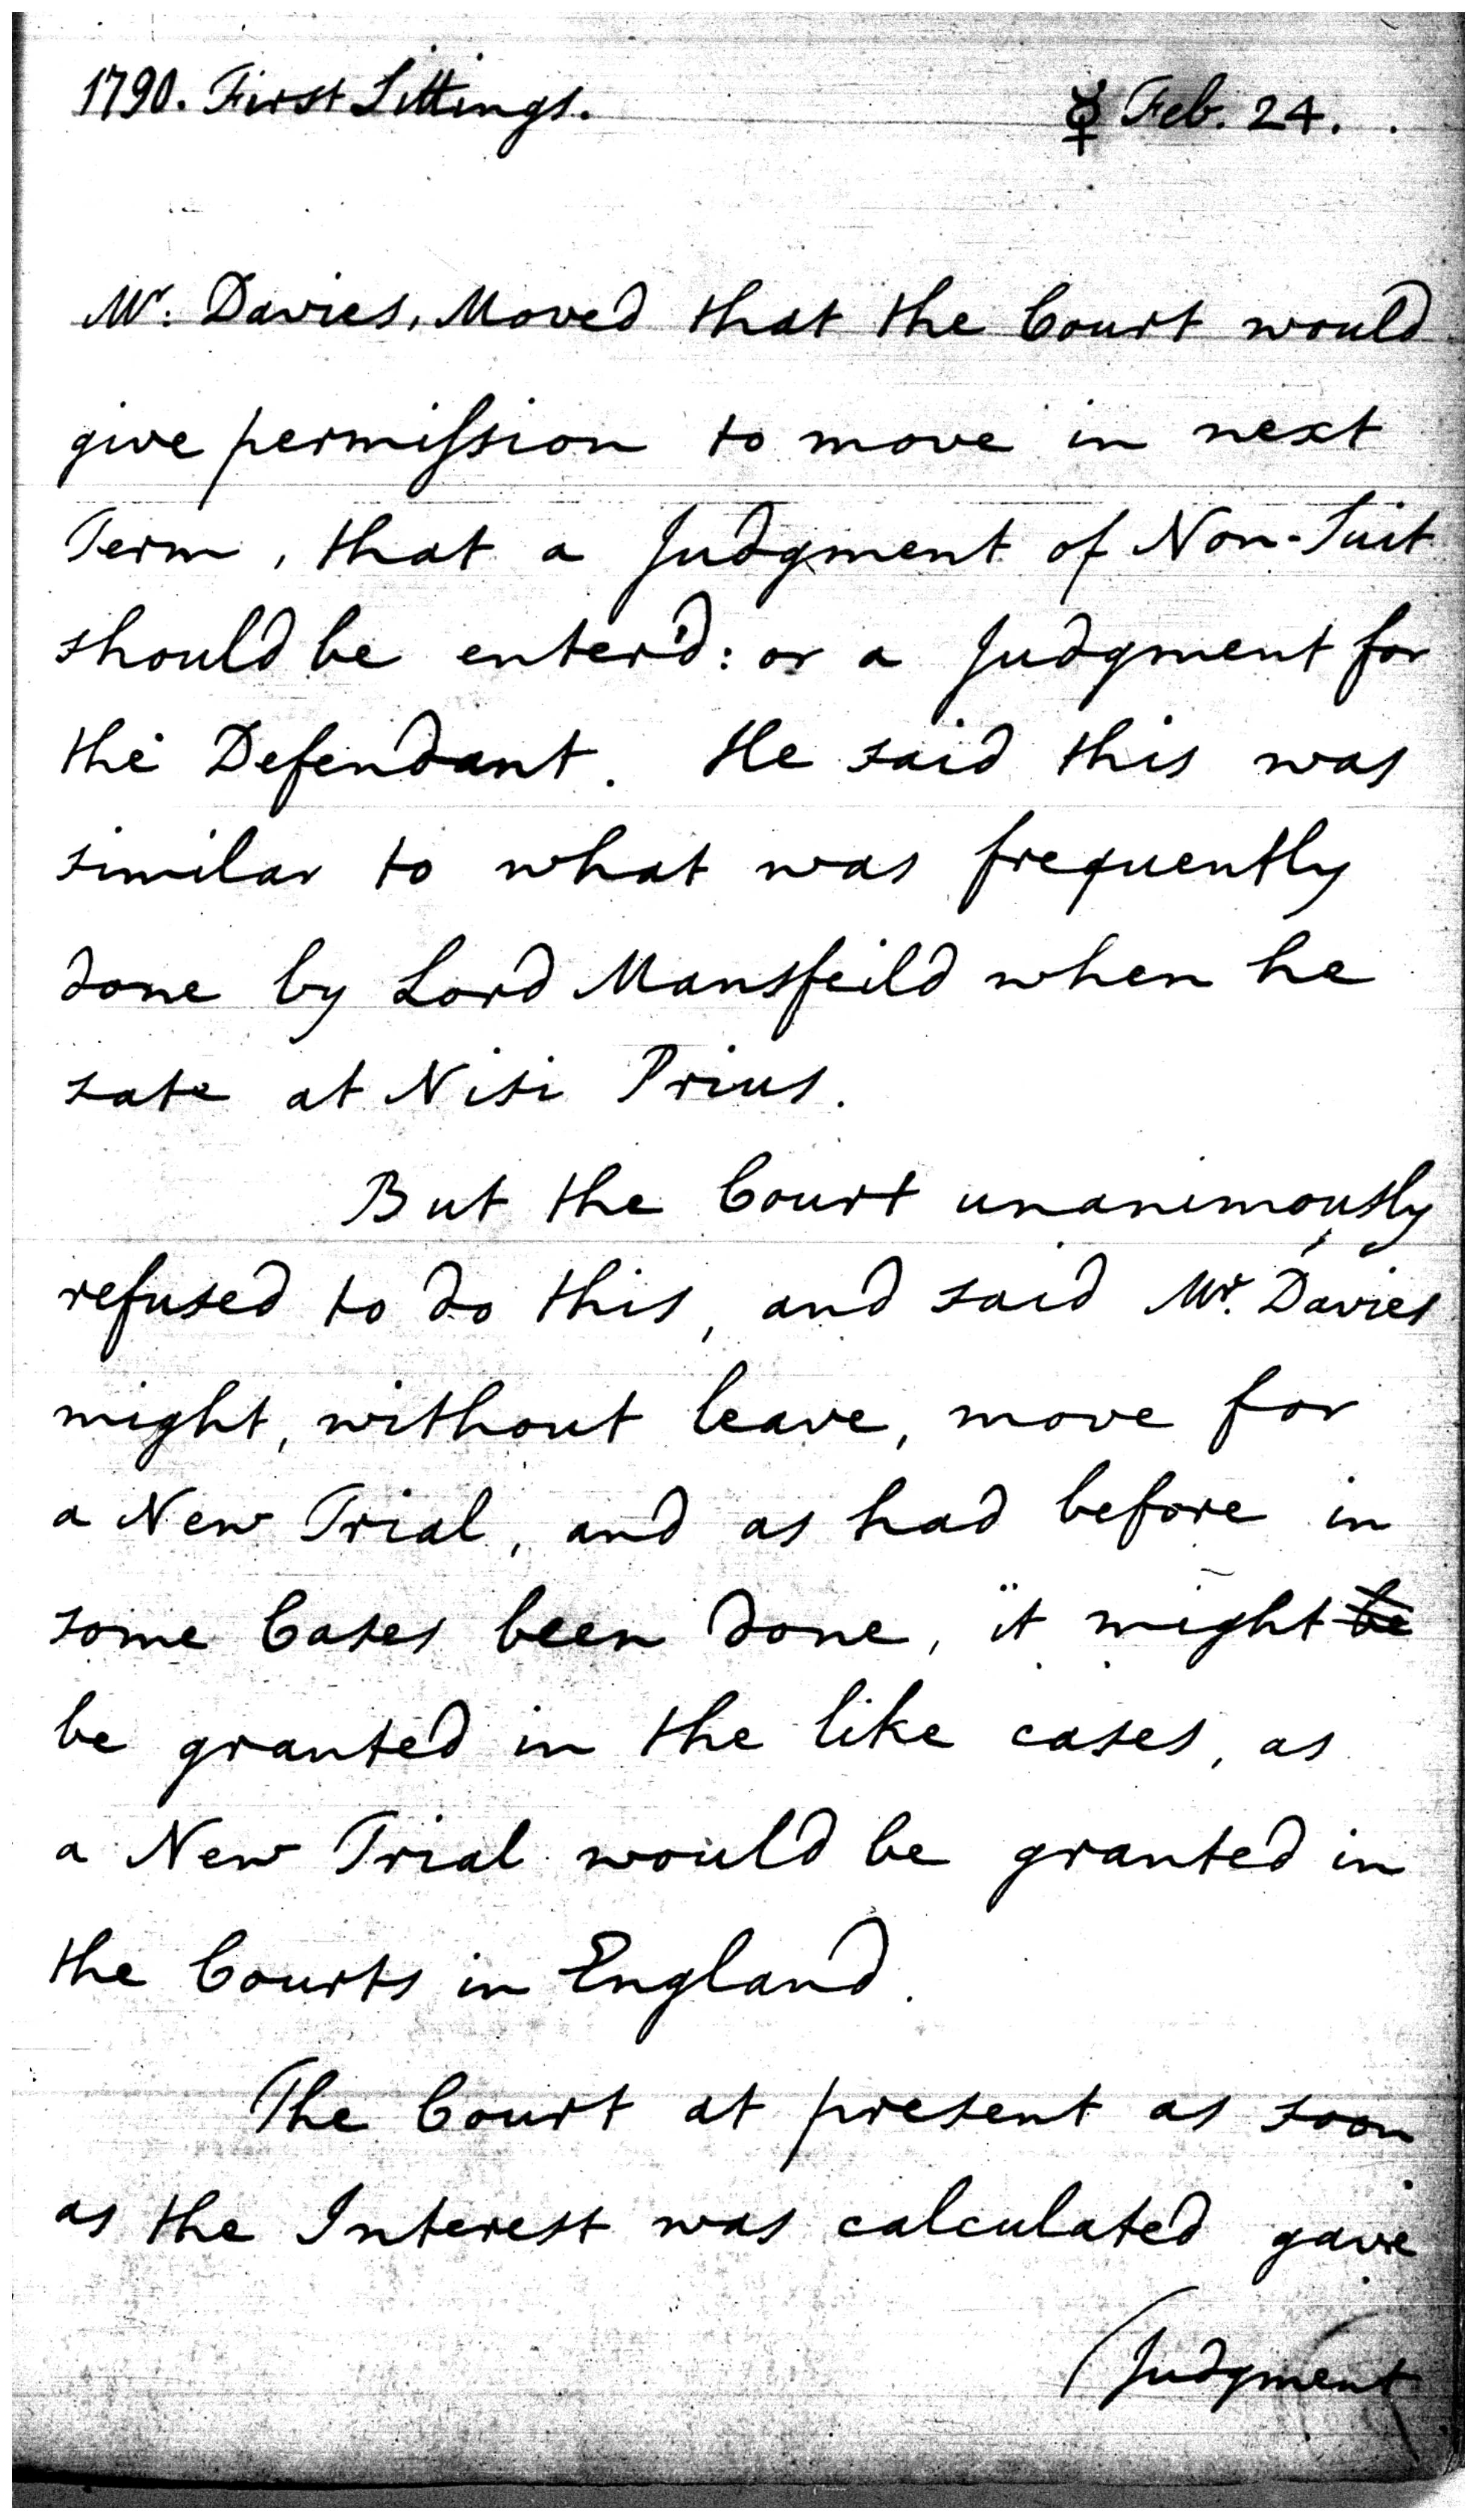 1790. First Sittings. ☿ Feb. 24.
Mr. Davies, Moved that the Court would
give permiſsion to move in next
Term, that a Judgment of Non-Suit
should be enter'd: or a Judgment for
the Defendant. He said this was
similar to what was frequently
done by Lord Mansfeild when he
sate at Nisi Prius.
But the Court unanimously
refused to do this, and said Mr. Davies
might, without leave, move for
a New Trial, and as had before in
some Cases been done, it might be
be granted in the like cases, as
a New Trial would be granted in
the Courts in England.
The Court at present as soon
as the Interest was calculated gave
Judgment